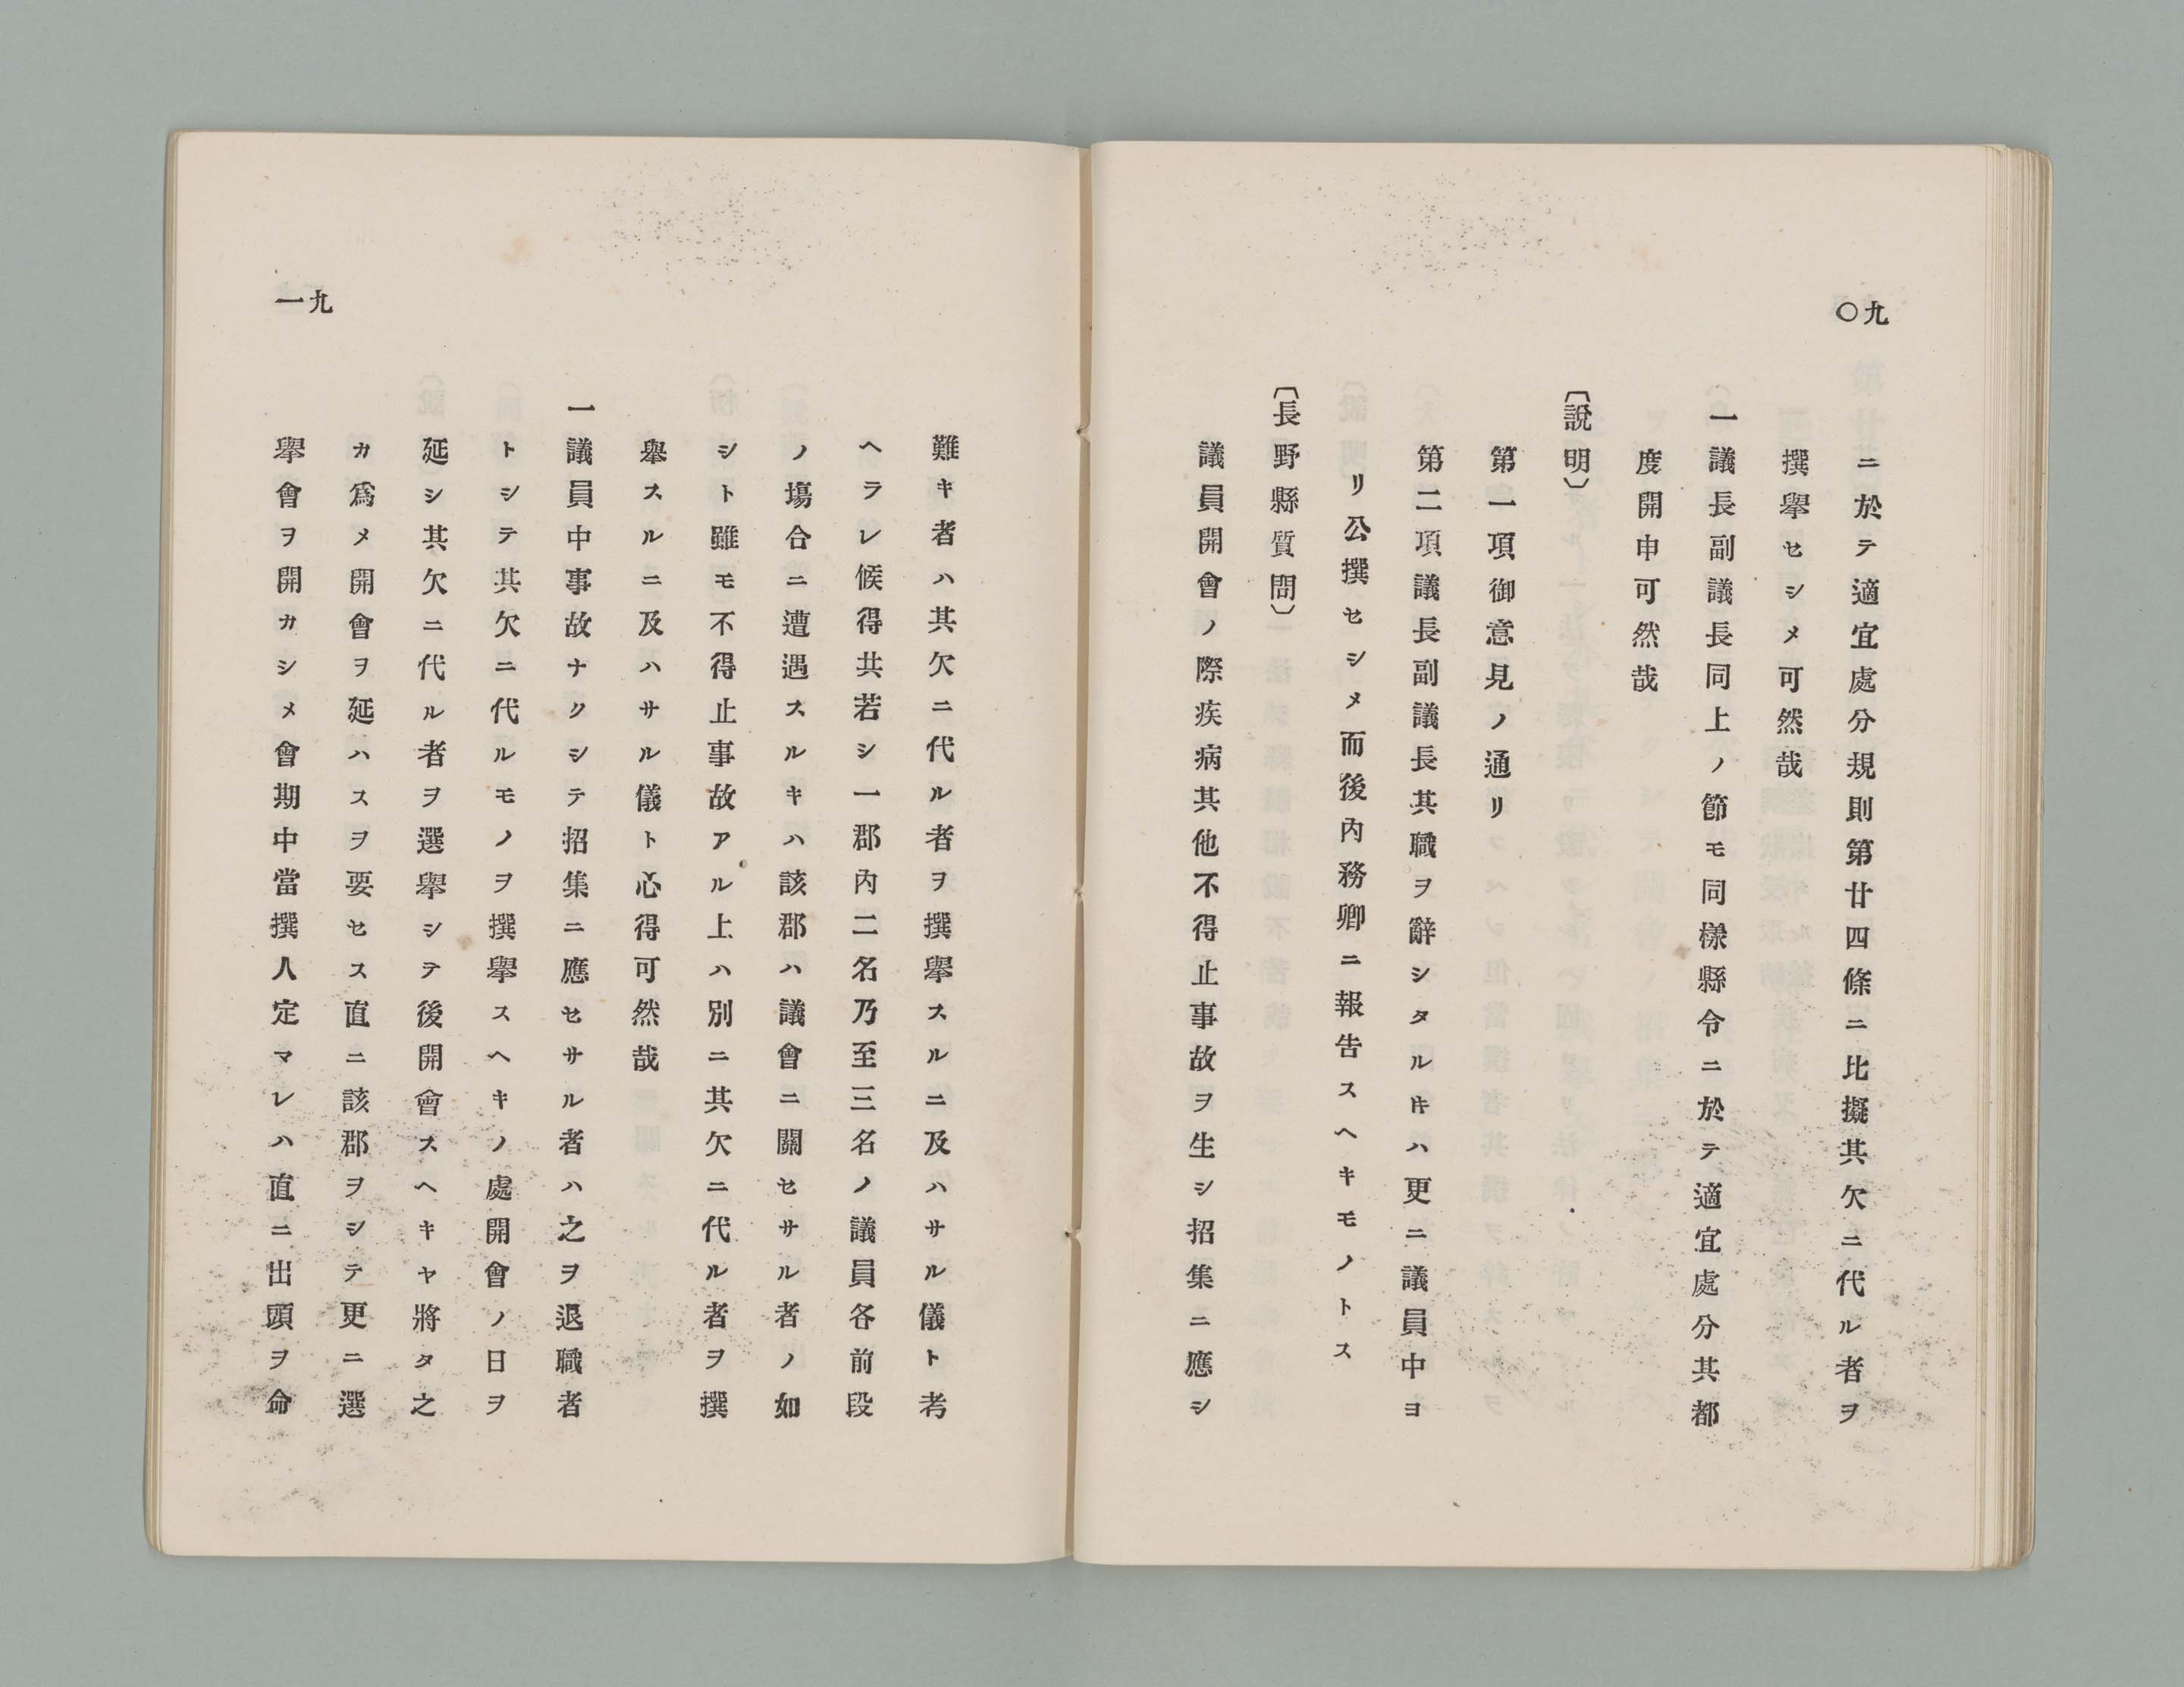 九〇
ニ於テ適宜處分規則第廿四條ニ比擬其欠ニ代ル者ヲ
撰擧セシメ可然哉
一議長副議長同上ノ節モ同樣縣令ニ於テ適宜處分其都
度開申可然哉
〔說明〕
第一項御意見ノ通リ
第二項議長副議長其職ヲ辭シタル𪜈ハ更ニ議員中ヨ
リ公撰セシメ而後內務卿ニ報告スヘキモノトス
〔長野縣質問〕
議員開會ノ際疾病其他不得止事故ヲ生シ招集ニ應シ
九一
難キ者ハ其欠ニ代ル者ヲ撰擧スルニ及ハサル儀ト考
ヘラレ候得共若シ一郡內二名乃至三名ノ議員各前段
ノ塲合ニ遭遇スルキハ該郡ハ議會ニ關セサル者ノ如
シト雖モ不得止事故アル上ハ別ニ其欠ニ代ル者ヲ撰
擧スルニ及ハサル儀ト心得可然哉
一議員中事故ナクシテ招集ニ應セサル者ハ之ヲ退職者
トシテ其欠ニ代ルモノヲ撰擧スヘキノ處開會ノ日ヲ
延シ其欠ニ代ル者ヲ選擧シテ後開會スヘキヤ將タ之
カ爲メ開會ヲ延ハスヲ要セス直ニ該郡ヲシテ更ニ選
擧會ヲ開カシメ會期中當撰人定マレハ直ニ出頭ヲ命